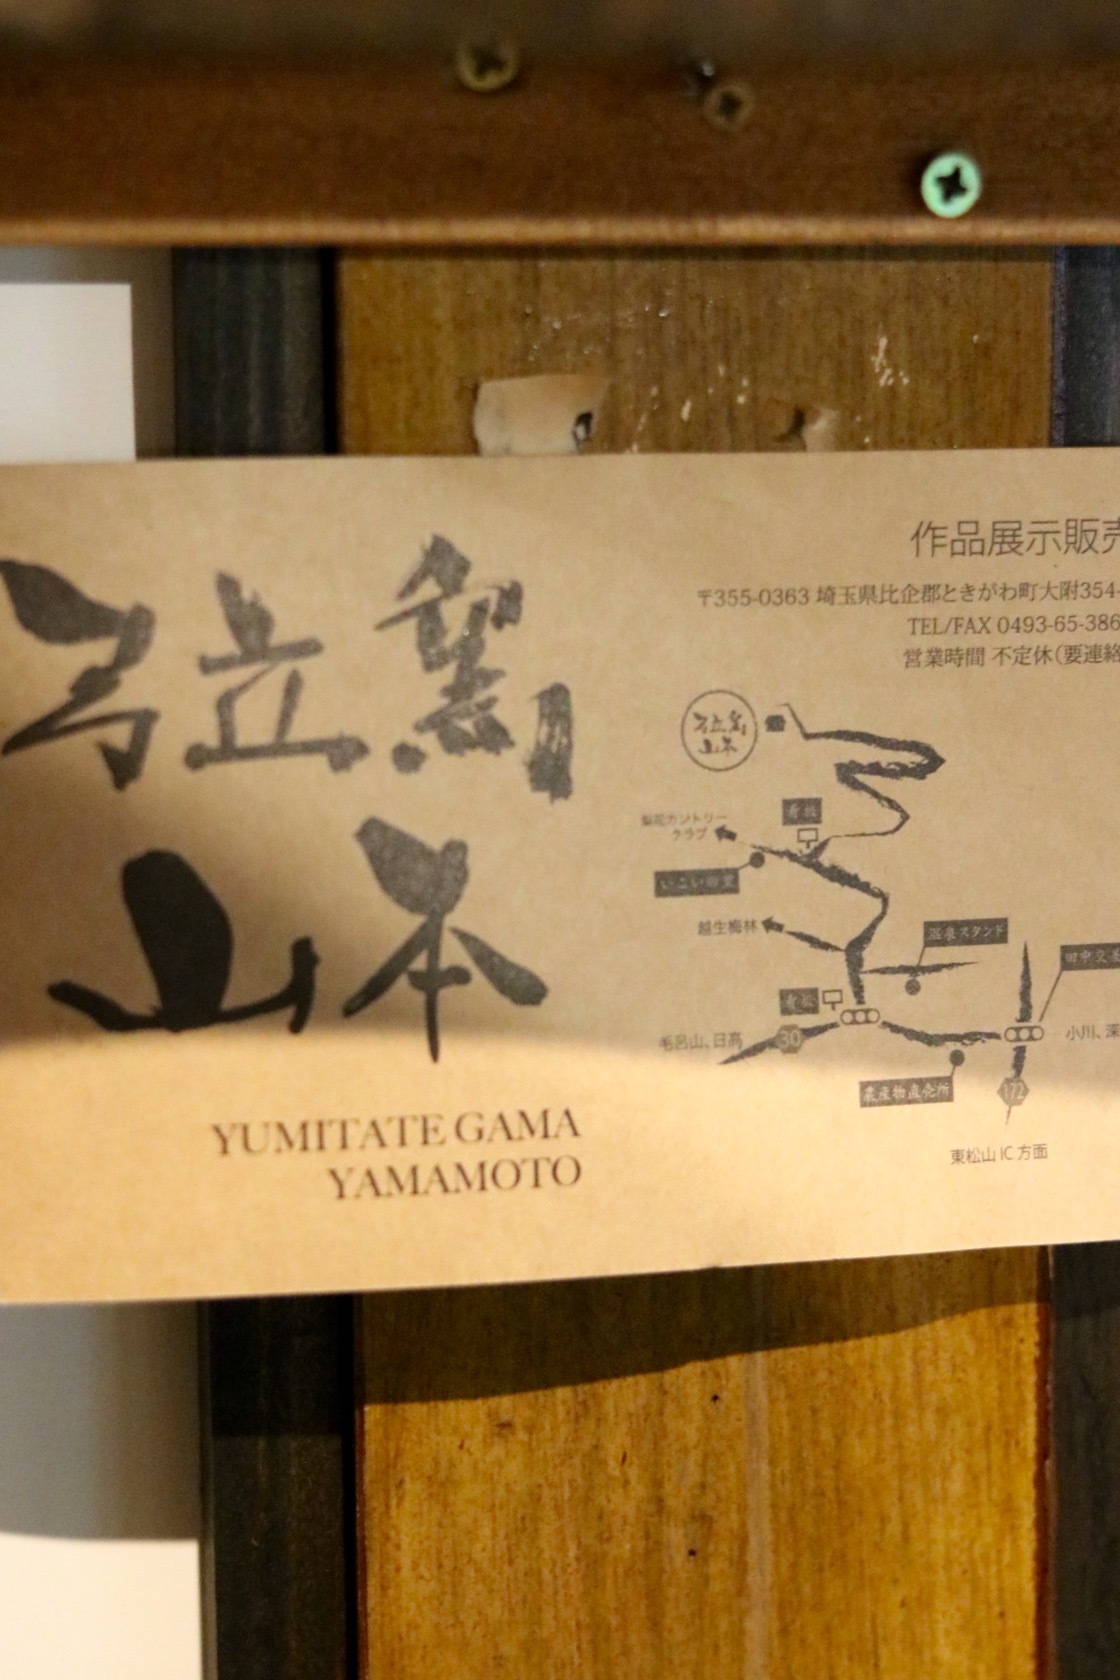 弓立窯
山本
YUMITATE GAMA
YAMAMOTO
作品展示販売
〒355-0363 埼玉県比企郡ときがわ町大附354-
TEL/FAX 0493-65-386
営業時間 不定休（要連絡
弓立窯
山本
看板
梨花カントリー
クラブ
いこいの里
越生梅林
温泉スタンド
田中交差
看板
毛呂山、日高
30
小川、深
農産物直売所
172
東松山IC方面